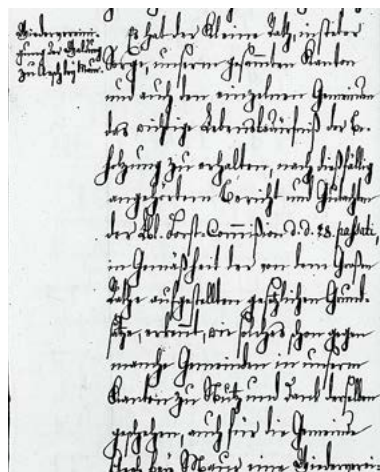 Wiederverein-
igung der Holzung
zu Aesch bey Maur.
Es hat der Kleine Rath, in steter
Sorge, unserm gesammten Kanton
und auch den einzelnen Gemeinden
das wichtige Lebensbedürfniß der Be-
holzung zu erhalten, nach dießfällig
angehörtem Bericht und Gutachten
der Lbl. Forst-Commißion d. d. 28. passati,
in Gemäßheit der von dem Großen
Rathe aufgestellten gesetzlichen Grund-
sätze, erkennt, wie solches schon gegen
manche Gemeinden in unserm
Kanton zu Nutz und Dank derselben
geschehen, auch für die Gemeinde
Aesch bey Maur eine Wiederverei-